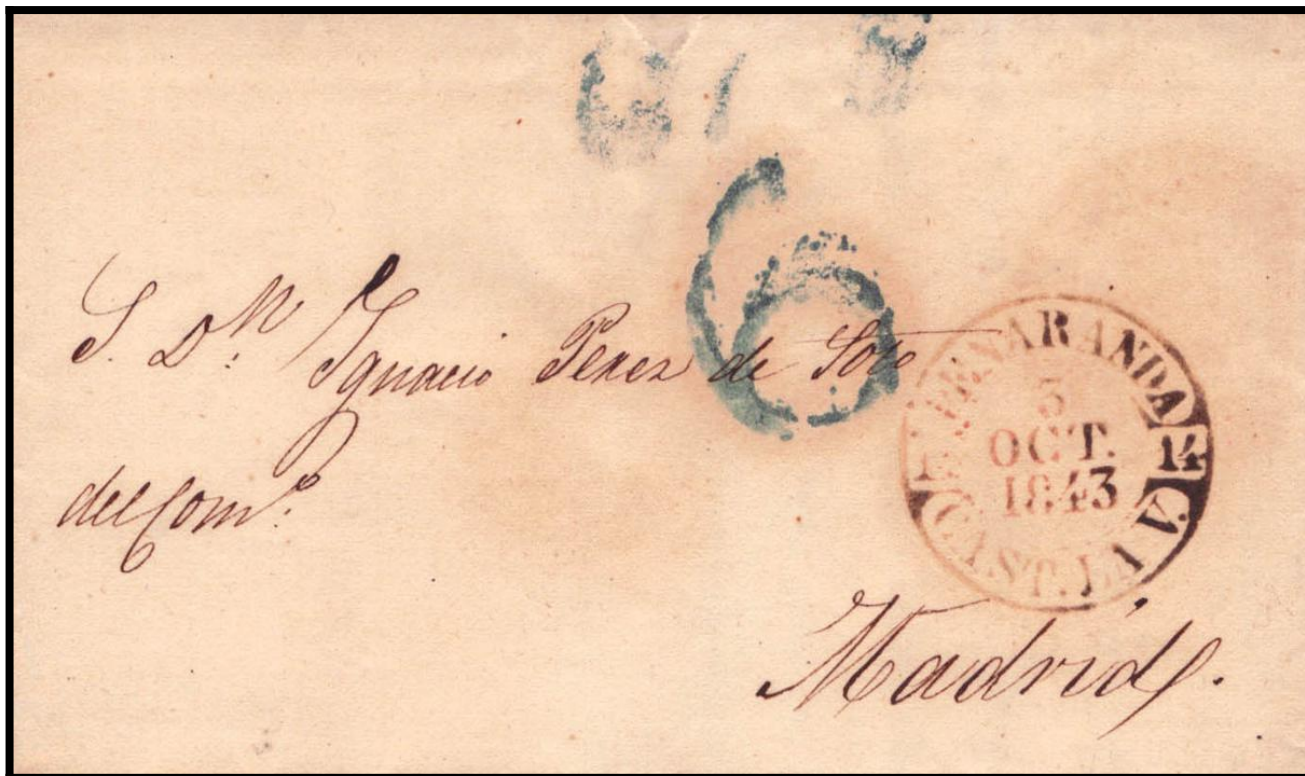 6
S. Dn. Ygnacio Perez de Soto
del Como.
PEÑARANDA
14
3
OCT.
1843
CAST. LA V.
Madrid.